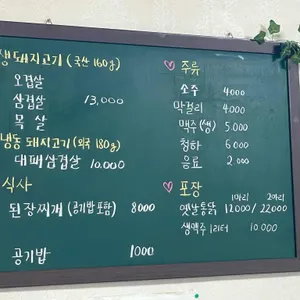 생돼지고기 (국산 160g)
오겹살
삼겹살 13,000
목 살
냉동 돼지고기 (외국 180g)
대패삼겹살 10.000
식사
된장찌개 (공기밥 포함) 8000
공기밥 1000
♡ 주류
소주 4000
막걸리 4.000
맥주 (생) 5.000
청하 6000
음료 2.000
♡ 포장
1마리 2마리
옛날통닭 12000 / 22000
생맥주 1리터 10.000